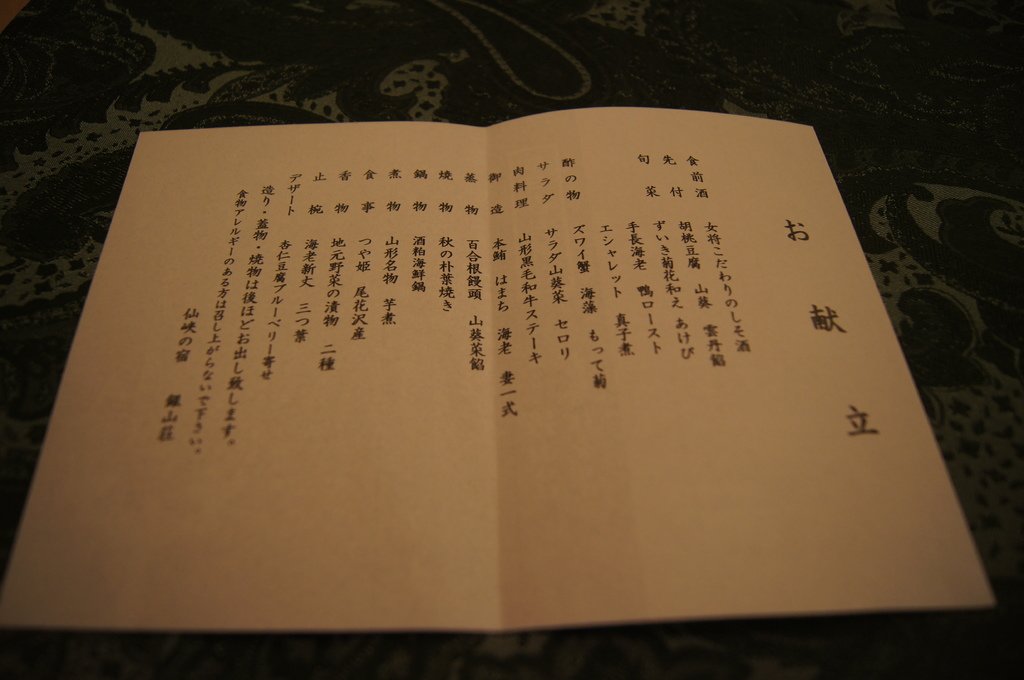 お献立
食前酒 女将こだわりのしそ酒
先付 胡桃豆腐 山葵 雲丹餡
旬菜 ずいき菊花和え あけび
手長海老 鴨ロースト
エシャレット 真子煮
酢の物 ズワイ蟹 海藻 もって菊
サラダ サラダ山葵菜 セロリ
肉料理 山形黒毛和牛ステーキ
御造 本鮪 はまち 海老 妻一式
蒸物 百合根饅頭 山葵菜餡
焼物 秋の朴葉焼き
鍋物 酒粕海鮮鍋
煮物 山形名物 芋煮
食事 つや姫 尾花沢産
香物 地元野菜の漬物 二種
止椀 海老新丈 三つ葉
デザート 杏仁豆腐ブルーベリー寄せ
造り・蓋物・焼物は後ほどお出し致します。
食物アレルギーのある方は召し上がらないで下さい。
仙峡の宿 銀山荘